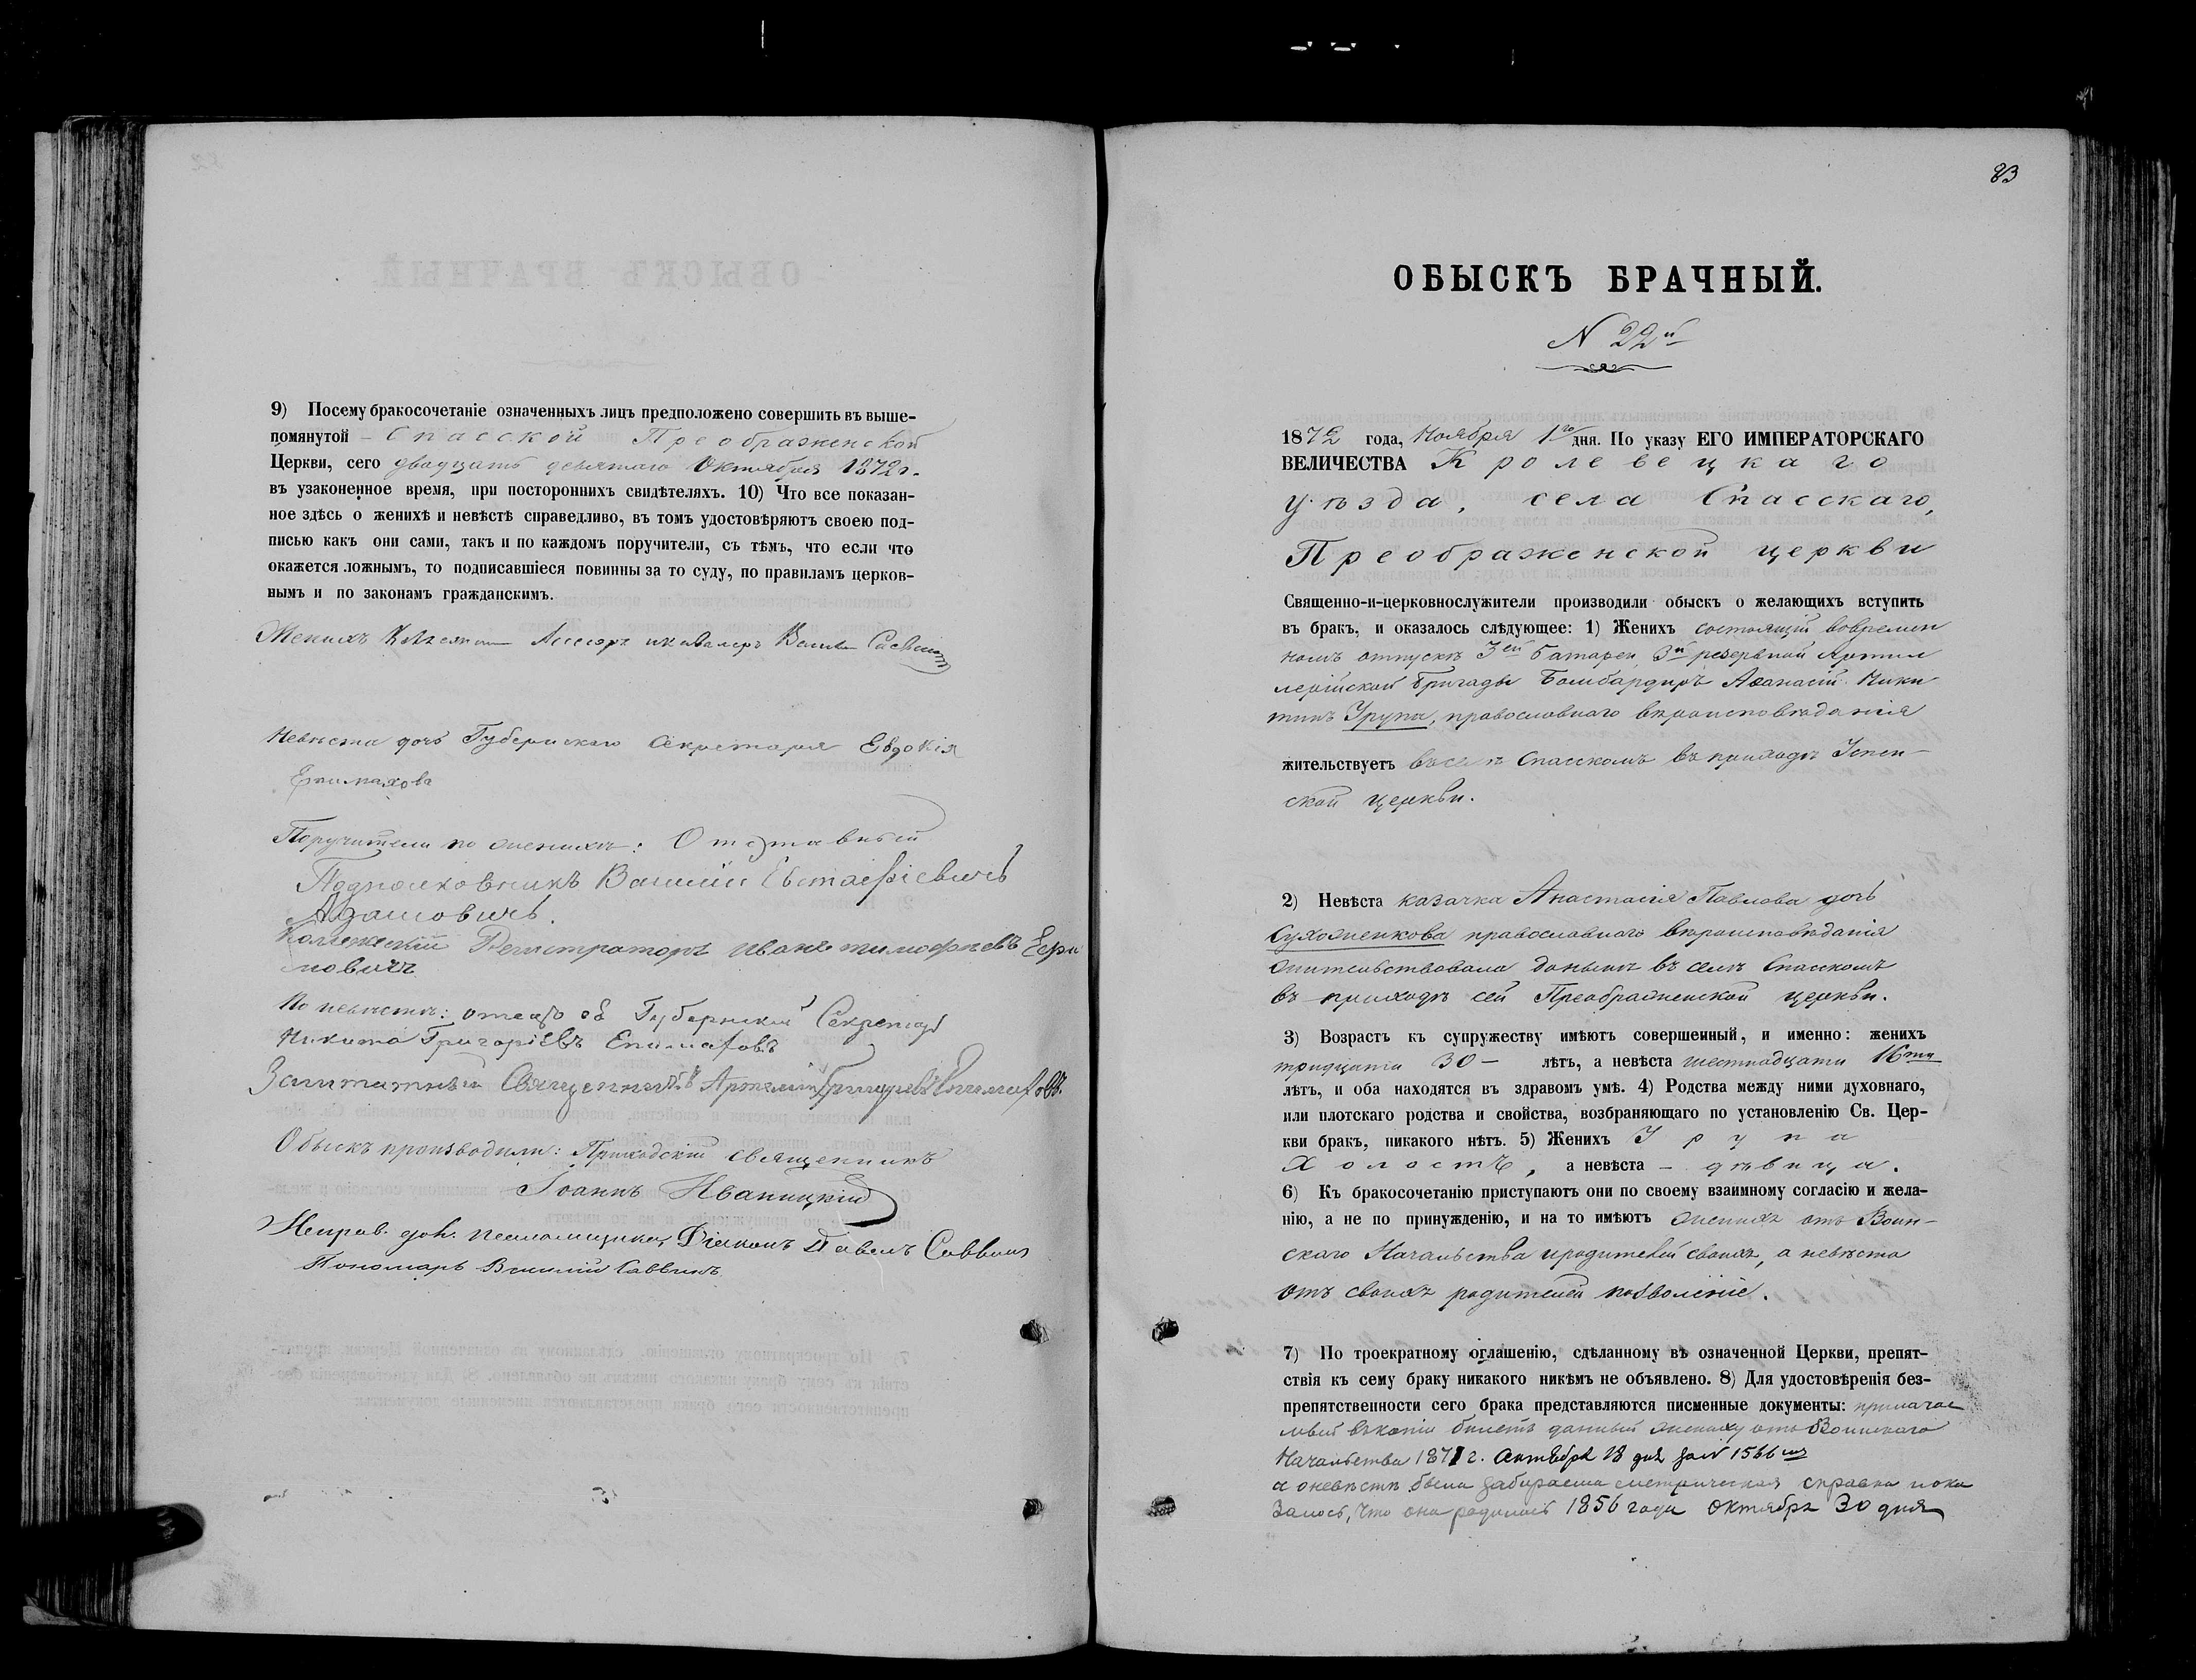 9) Посему бракосочетаніе означенныхъ лицъ предположено совершить въ выше-
помянутой – Спасской Преображенской
Церкви, сего двадцать девятаго Октября 1872 г.
въ узаконенное время, при постороннихъ свидѣтеляхъ. 10) Что все показан-
ное здѣсь о женихѣ и невѣстѣ справедливо, въ томъ удостовѣряютъ своею под-
писью какъ они сами, такъ и по каждомъ поручители, съ тѣмъ, что если что
окажется ложнымъ, то подписавшіеся повинны за то суду, по правиламъ церков-
нымъ и по законамъ гражданскимъ.
Женихъ Ассесоръ и кавалеръ
Невѣста дочь Губернскаго Секретаря Евдокія
Епимахова
Поручители по женихѣ: Отставный
Подполковникъ Василій Евстафіевичъ
Адамовичъ.
Коллежскій Регистраторъ Иванъ Тимофѣевъ
По невѣстѣ: отецъ ея Губернскій Секретарь
Никита Григоріевъ Епимаховъ
Заштатный Священникъ Артемій Григорьевъ Епимаховъ.
Обыскъ производили: Приходскій священникъ
Іоаннъ Иваницкій
Исправ. дол. псаломщика, Діаконъ Павелъ Саввинъ
Пономарь Василій Саввинъ
83
ОБЫСКЪ БРАЧНЫЙ.
N 22й
1872 года, Ноября 1го дня. По указу ЕГО ИМПЕРАТОРСКАГО
ВЕЛИЧЕСТВА Кролевецкаго
уѣзда, села Спасскаго,
Преображенской церкви
Священно-и-церковнослужители производили обыскъ о желающихъ вступить
въ бракъ, и оказалось слѣдующее: 1) Женихъ состоящій вовремен
номъ отпускѣ 3ей батареи, 3й резервной Артил
лерійской бригады Бомбардиръ Аѳанасій Ники
тинъ Урупа, православнаго вѣроисповѣданія
жительствуетъ въ селѣ Спасскомъ въ приходѣ Успен-
ской церкви.
2) Невѣста казачка Анастасія Павлова дочь
Сухоженкова православнаго вѣроисповѣданія
жительствовала донынѣ въ селѣ Спасскомъ
въ приходѣ сей Преображенской церкви.
3) Возрастъ къ супружеству имѣютъ совершенный, и именно: женихъ
тридцати 30 – лѣтъ, а невѣста шестнадцати 16ти
лѣтъ, и оба находятся въ здравомъ умѣ. 4) Родства между ними духовнаго,
или плотскаго родства и свойства, возбраняющаго по установленію Св. Цер-
кви бракъ, никакого нѣтъ. 5) Женихъ Урупа
холостъ, а невѣста – дѣвица.
6) Къ бракосочетанію приступаютъ они по своему взаимному согласію и жела-
нію, а не по принужденію, и на то имѣютъ женихъ отъ Воин-
скаго Начальства и родителей своихъ, а невѣста
отъ своихъ родителей позволеніе.
7) По троекратному оглашенію, сдѣланному въ означенной Церкви, препят-
ствія къ сему браку никакого никѣмъ не объявлено. 8) Для удостовѣренія без-
препятственности сего брака представляются писменные документы: прилагае
мый въ копіи билетъ данный жениху отъ Воинскаго
Начальства 1871 г. Октября 18 дня за N 1566мъ
а о невѣстѣ была забираема метрическая справка и ока
залось, что она родилась 1856 года Октября 30 дня